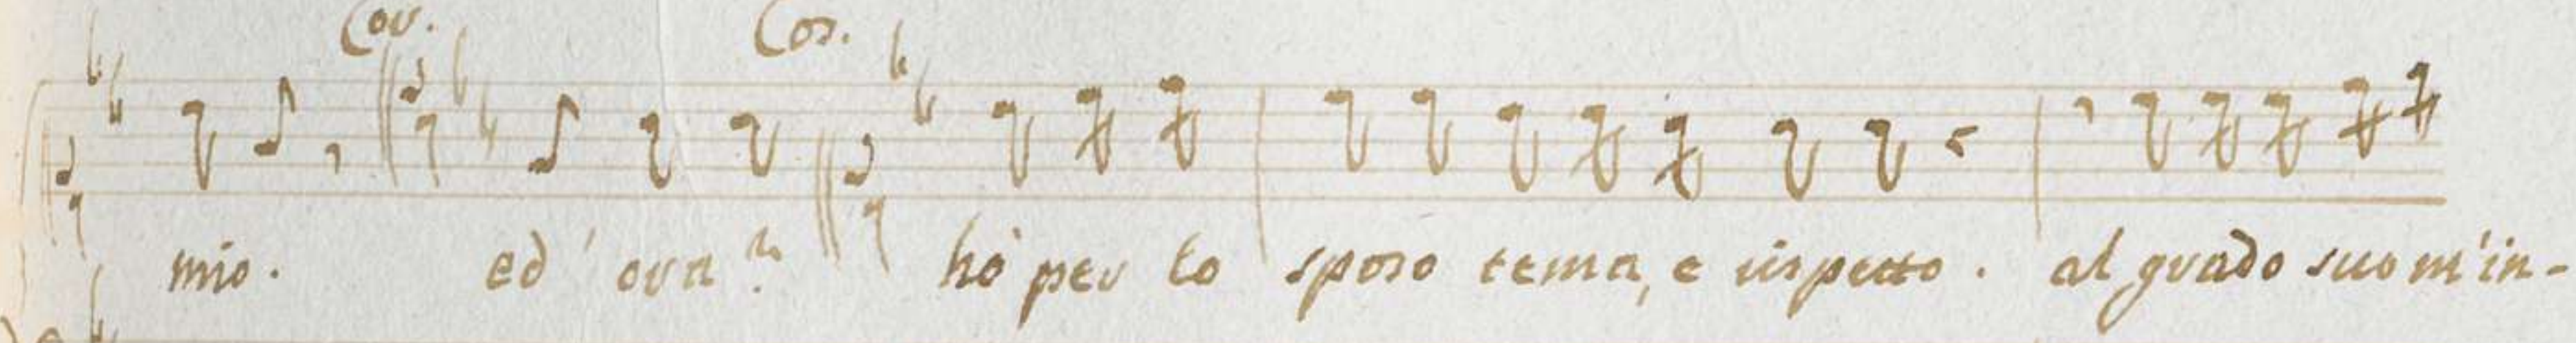 Cor. Cos.
mio. ed' ora? hò per lo sposo tema, e rispetto. al grado suo m'in-